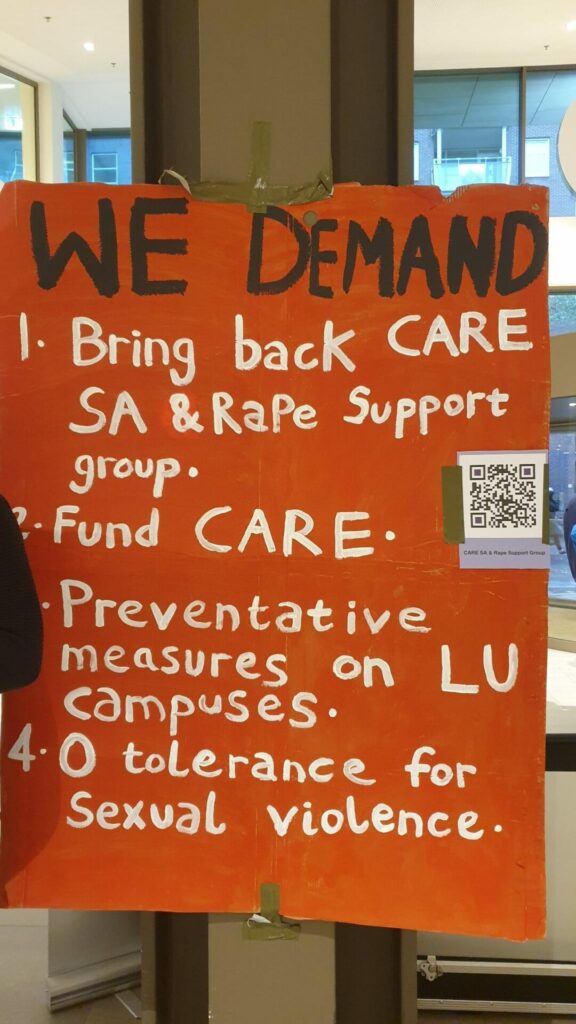 WE DEMAND
1. Bring back CARE
SA & Rape Support
group.
2. Fund CARE.
Preventative
measures on LU
campuses.
4. 0 tolerance for
Sexual violence.
CARE SA & Rape Support Group